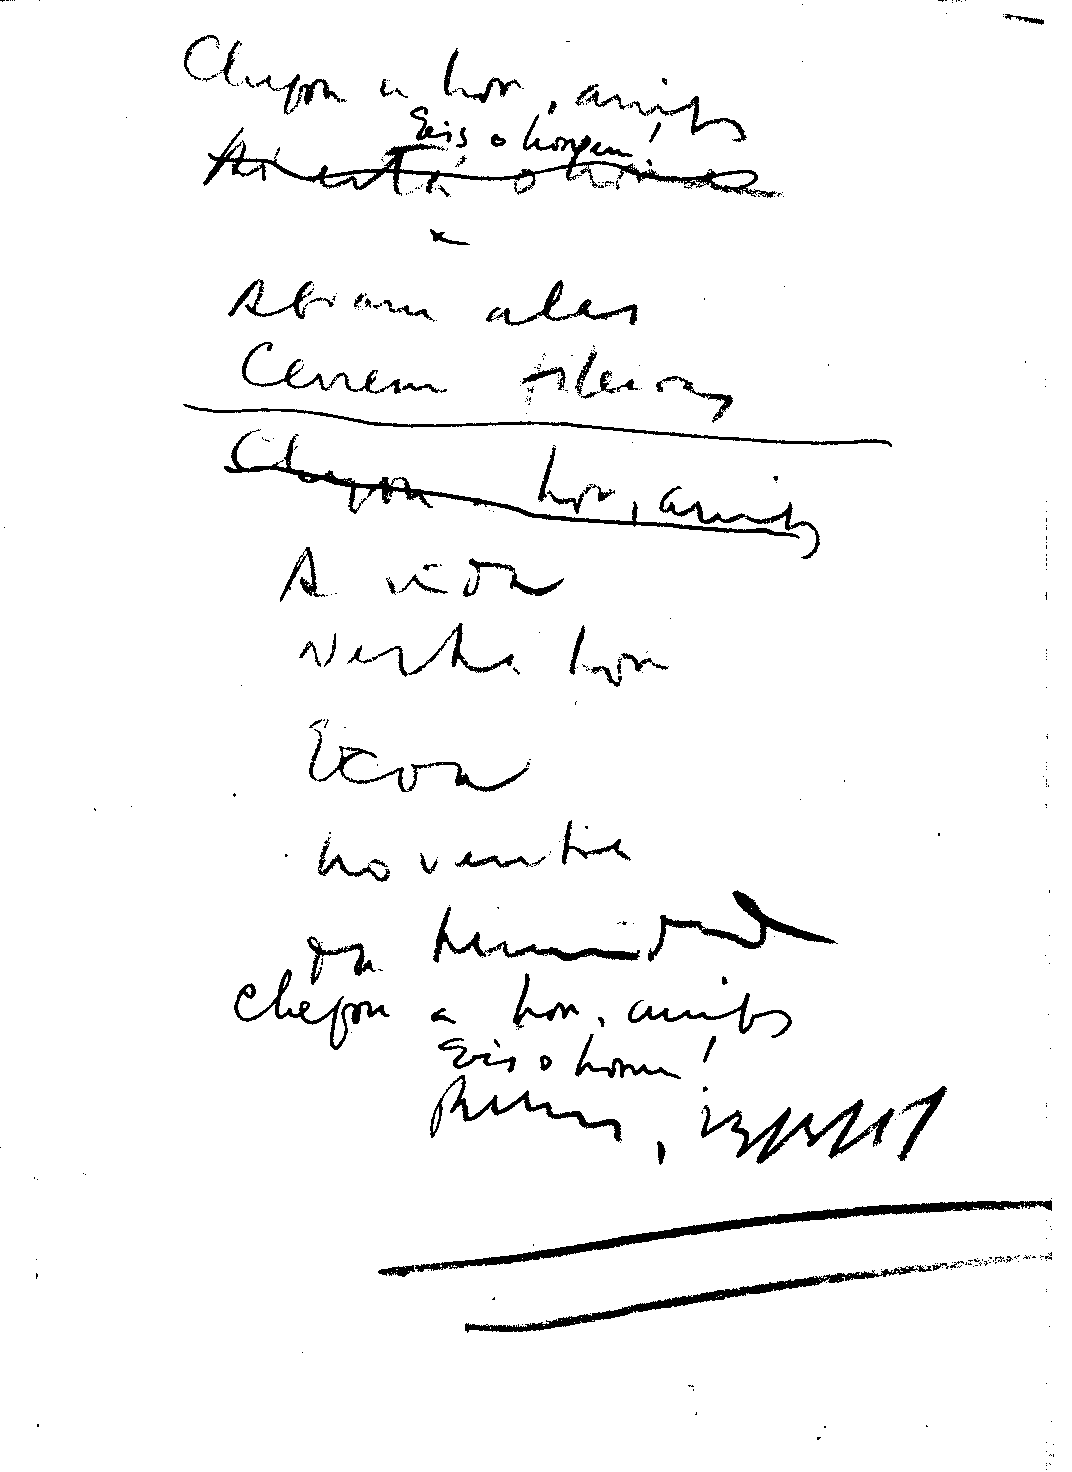 Chegou a hora, amigos
Eis o homem!
Aí está o homem
Abram alas
Cerrem fileiras
Chegou a hora, amigos
A vida
nesta hora
Ecoa
no ventre
da humanidade
Chegou a hora, amigos
Eis o homem!